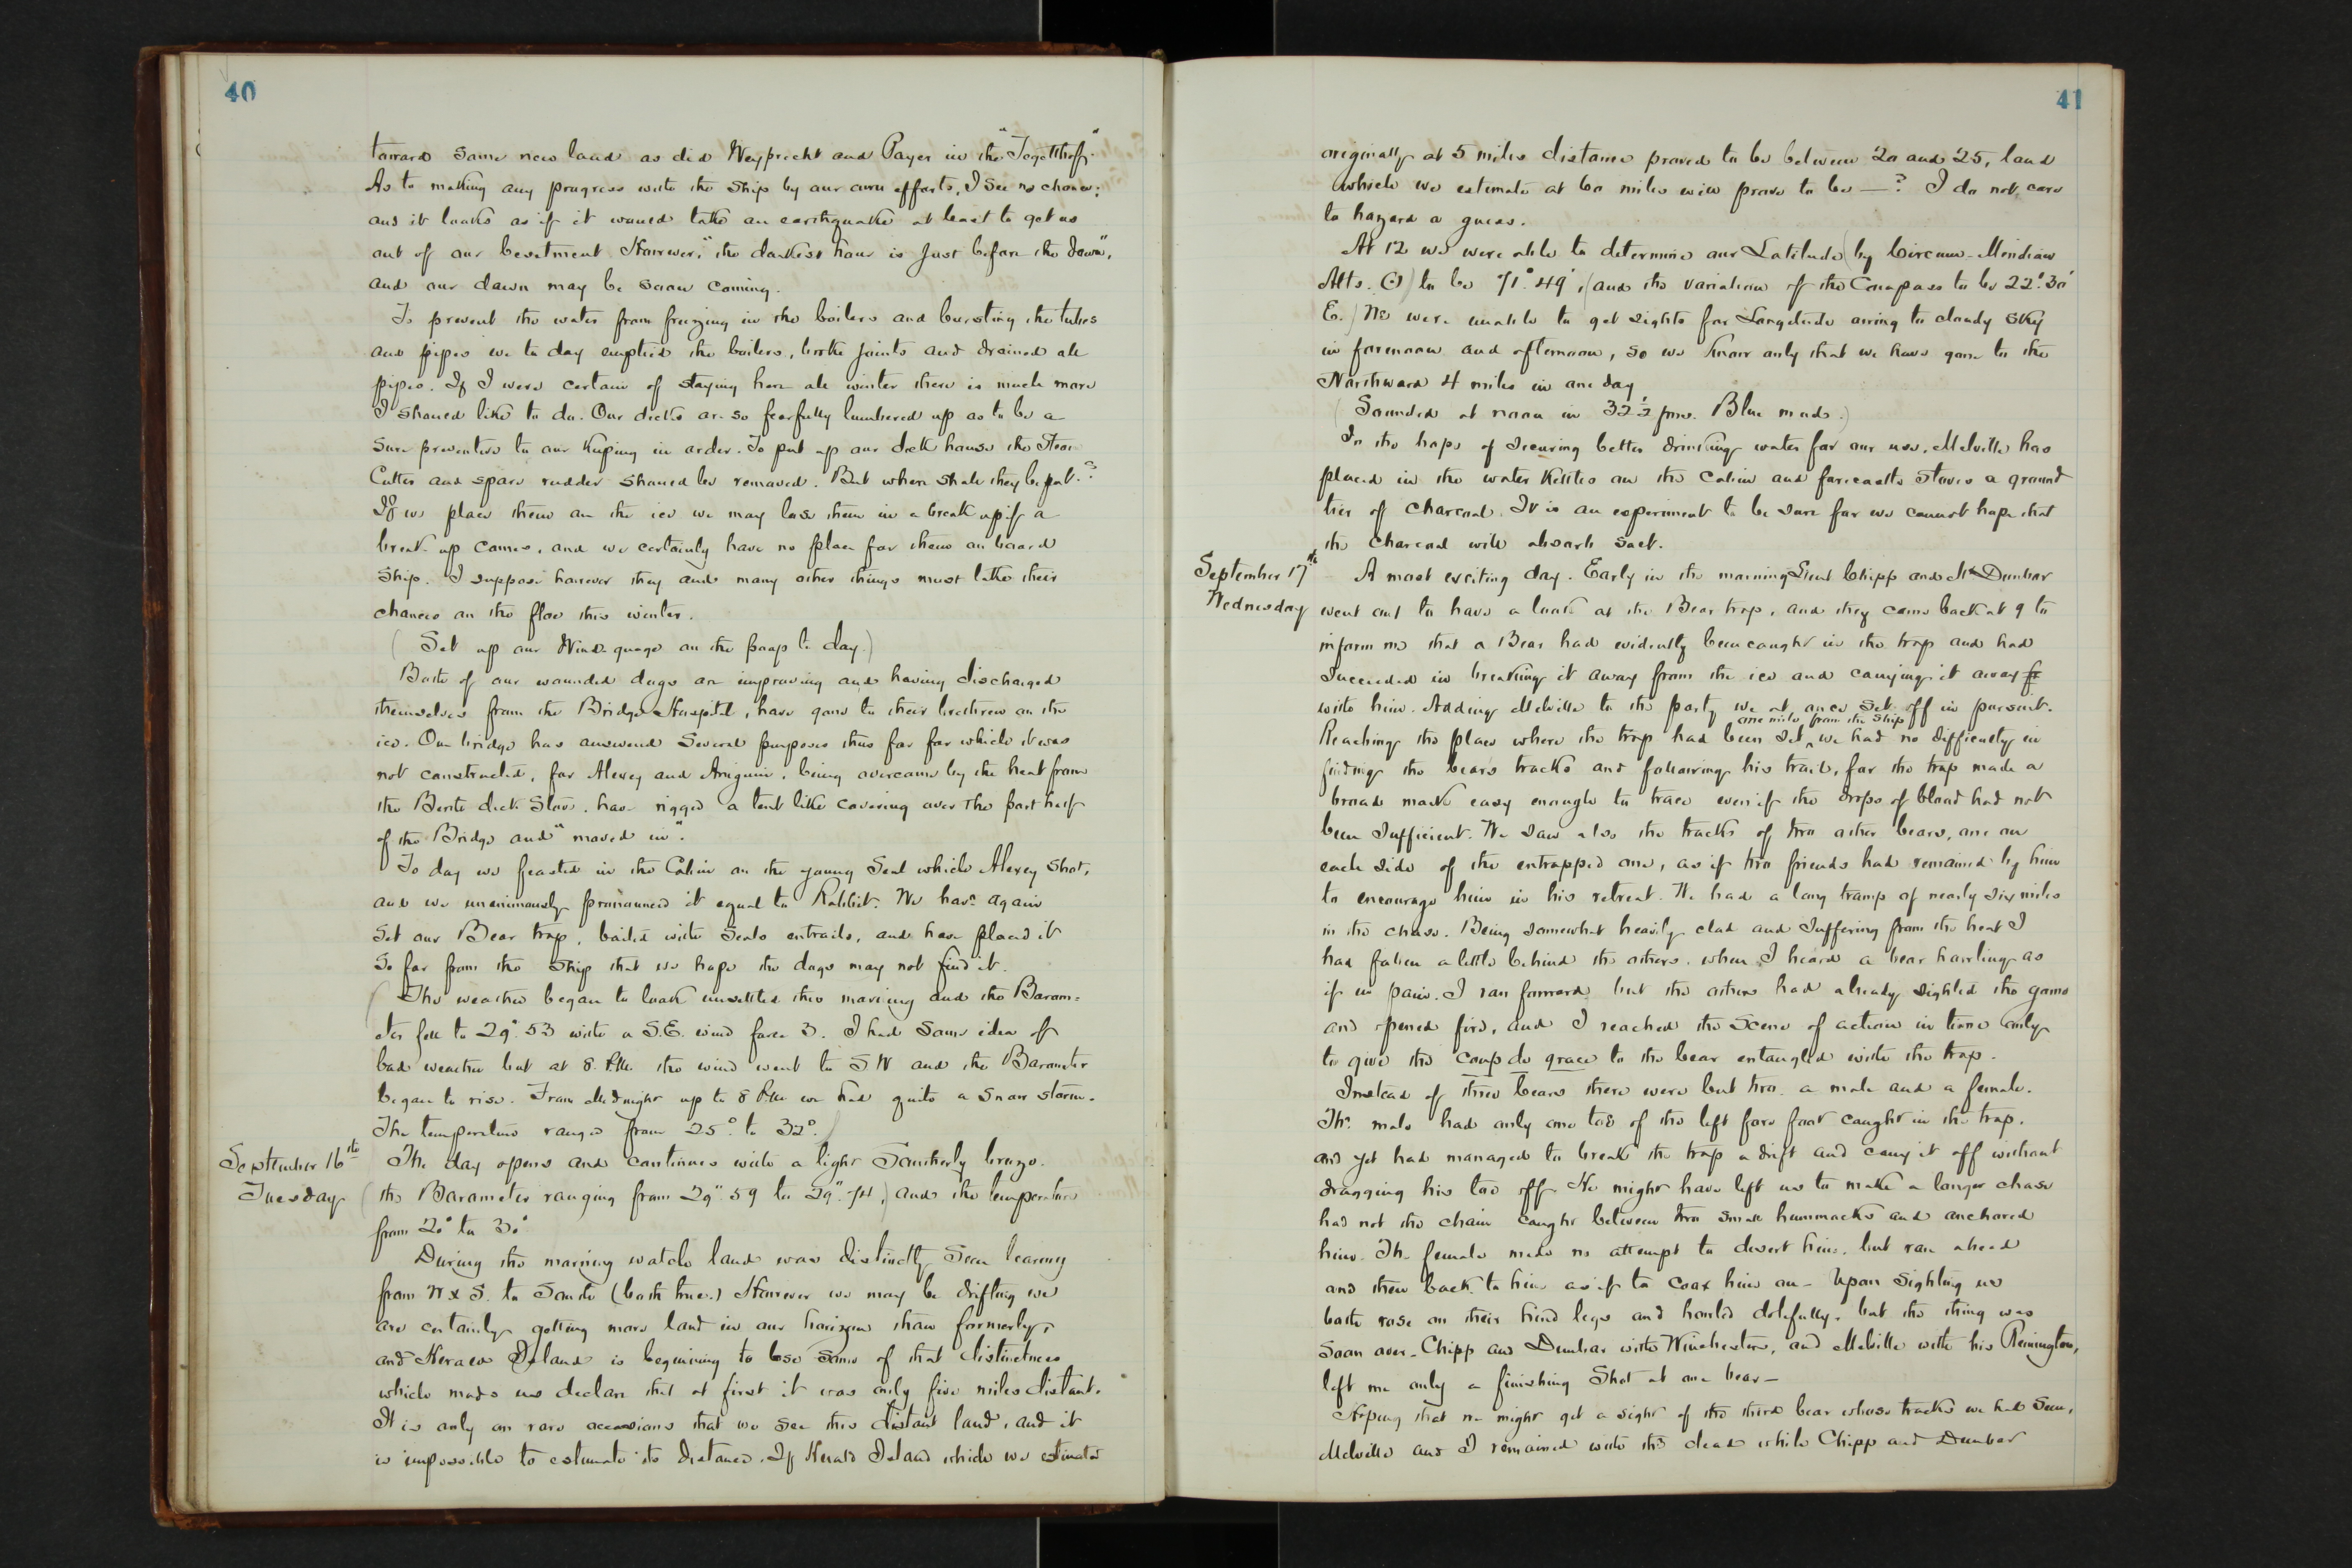 40
toward some new land as did Weyprecht and Payer in the "Tegetthoff"
As to making any progress with the ship by our own efforts, I see no chance;
and it looks as if it would take an earthquake at least to get us
out of our besetment. However, "the darkest hour is just before the dawn",
and our dawn may be soon coming.
To prevent the water from freezing in the boilers and bursting the tubes
and pipes we to day emptied the boilers, broke joints and drained all
pipes. If I were certain of staying here all winter there is much more
I should like to do. Our decks are so fearfully lumbered up as to be a
sure preventive to our keeping in order. To put up our deck house the Steam
Cutter and spare rudder should be removed. But where shall they be put?
If we place them on the ice we may lose them in a break up if a
break up comes, and we certainly have no place for them on board
ship. I suppose however they and many other things must take their
chances on the floe this winter.
(Set up our Wind-guage on the poop to day.)
Both of our wounded dogs are improving and having discharged
themselves from the Bridge Hospital, have gone to their brethren on the
ice. Our bridge has answered several purposes thus far for which it was
not constructed, for Alexey and Aniguin, being overcome by the heat from
the Berth deck Stove, have rigged a tent like covering over the port half
of the Bridge and "moved in".
To day we feasted in the Cabin on the young Seal which Alexey shot,
and we unanimously pronounced it equal to Rabbit. We have again
set our Bear trap, baited with Seals entrails, and have placed it
so far from the Ship that we hope the dogs may not find it.
(The weather began to look unsettled this morning and the Barom=
eter fell to 29".53 with a S.E. wind force 3. I had some idea of
bad weather but at 8. P.M. the wind went to SW and the Barometer
began to rise. From Midnight up to 8 P.M. we had quite a snow storm.
The temperature ranged from 25° to 32°.)
September 16th The day opens and continues with a light Southerly breeze.
Tuesday (the Barometer ranging from 29".59 to 29".74,) and the temperature
from 20° to 30°
During the morning watch land was distinctly seen bearing
from W x S. to South (both true.) However we may be drifting we
are certainly getting more land in our horizon than formerly,
and Herald Island is beginning to lose some of that distinctness
which made us declare that at first it was only five miles distant.
It is only on rare occasions that we see this distant land, and it
is impossible to estimate its distance. If Herald Island which we estimated
41
originally at 5 miles distance proved to be between 20 and 25, land
which we estimate at 60 miles will prove to be —? I do not care
to hazard a guess.
At 12 we were able to determine our Latitude (by Circum-Meridian
Alts. ☉) to be 71° 49', (and the variation of the Compass to be 22° 30'
E.) We were unable to get sights for Longitude owing to cloudy sky
in forenoon and afternoon, so we know only that we have gone to the
Northward 4 miles in one day
(Sounded at noon in 32½ fms. Blue mud.)
In the hope of securing better drinking water for our use, Melville has
placed in the water kettles on the cabin and forecastle stoves a ground
tier of charcoal. It is an experiment to be sure for we cannot hope that
the charcoal will absorb salt.
September 17th A most exciting day. Early in the morning Lieut Chipp and Mr Dunbar
Wednesday went out to have a look at the Bear trap, and they came back at 9 to
inform me that a Bear had evidently been caught in the trap and had
succeeded in breaking it away from the ice and carrying it away fr
with him. Adding Melville to the party we at once set off in pursuit.
Reaching the place where the trap had been set ^ one mile from the ship we had no difficulty in
finding the bears tracks and following his trail, for the trap made a
broad mark easy enough to trace even if the drops of blood had not
been sufficient. We saw also the tracks of two other bears, one on
each side of the entrapped one, as if two friends had remained by him
to encourage him in his retreat. We had a long tramp of nearly six miles
in the chase. Being somewhat heavily clad and suffering from the heat I
had fallen a little behind the others, when I heard a bear howling as
if in pain. I ran forward but the others had already sighted the game
and opened fire, and I reached the scene of action in time only
to give the coup de grace to the bear entangled with the trap.
Instead of three bears there were but two. a male and a female.
The male had only one toe of the left fore foot caught in the trap.
and yet had managed to break the trap adrift and carry it off without
dragging his toe off. He might have left us to make a longer chase
had not the chain caught between two small hummocks and anchored
him. The female made no attempt to desert him, but ran ahead
and then back to him as if to coax him on – Upon sighting us
both rose on their hind legs and howled dolefully, but the thing was
soon over. Chipp and Dunbar with Winchesters, and Melville with his Remington,
left me only a finishing shot at one bear –
Hoping that we might get a sight of the third bear whose tracks we had seen,
Melville and I remained with the dead while Chipp and Dunbar